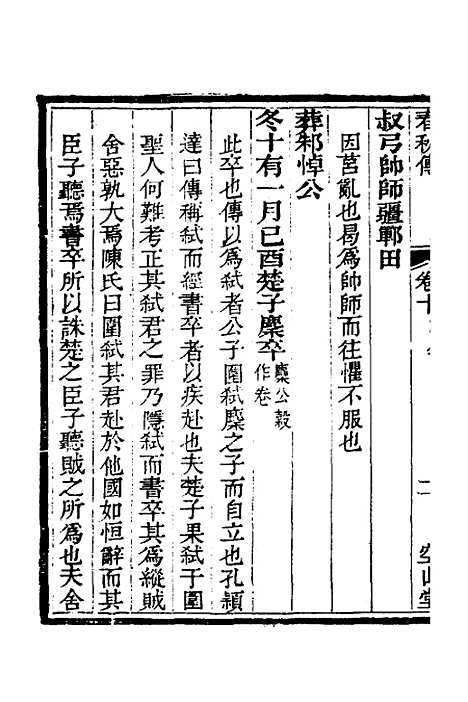 春秋傳 卷十 二 空山堂
叔弓帥師疆鄆田
因莒亂也曷爲帥師而往懼不服也
葬邾悼公
冬十有一月己酉楚子麇卒麇公穀作卷
此卒也傳以爲弑者公子圍弑麇之子而自立也孔穎
達曰傳稱弑而經書卒者以疾赴也夫楚子果弑于圍
聖人何難考正其弑君之罪乃隱弑而書卒其爲縱賊
舍惡孰大焉陳氏曰圍弑其君赴於他國如恒辭而其
臣子聽焉書卒所以誅楚之臣子聽賊之所爲也夫舍